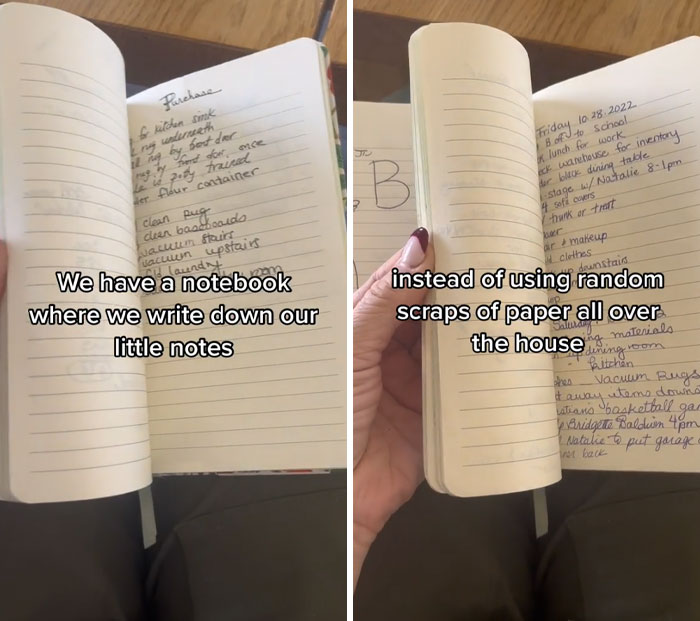 Purchase
for kitchen sink
rug underneath
rug by front door
rug by front door, once
is potty trained
flour container
clean rug
clean baseboards
vacuum stairs
vacuum upstairs
laundry
room
We have a notebook
where we write down our
little notes
B
Friday 10.28.2022
B off to school
lunch for work
warehouse for inventory
black dining table
stage w/ Natalie 8-1pm
sofa covers
trunk or treat
& makeup
clothes
downstairs
instead of using random
scraps of paper all over
the house
Saturday
materials
dining room
- Kitchen
Vacuum Rugs
away items
basketball
Bridgette Baldwin 4pm
Natalie to put garage
back